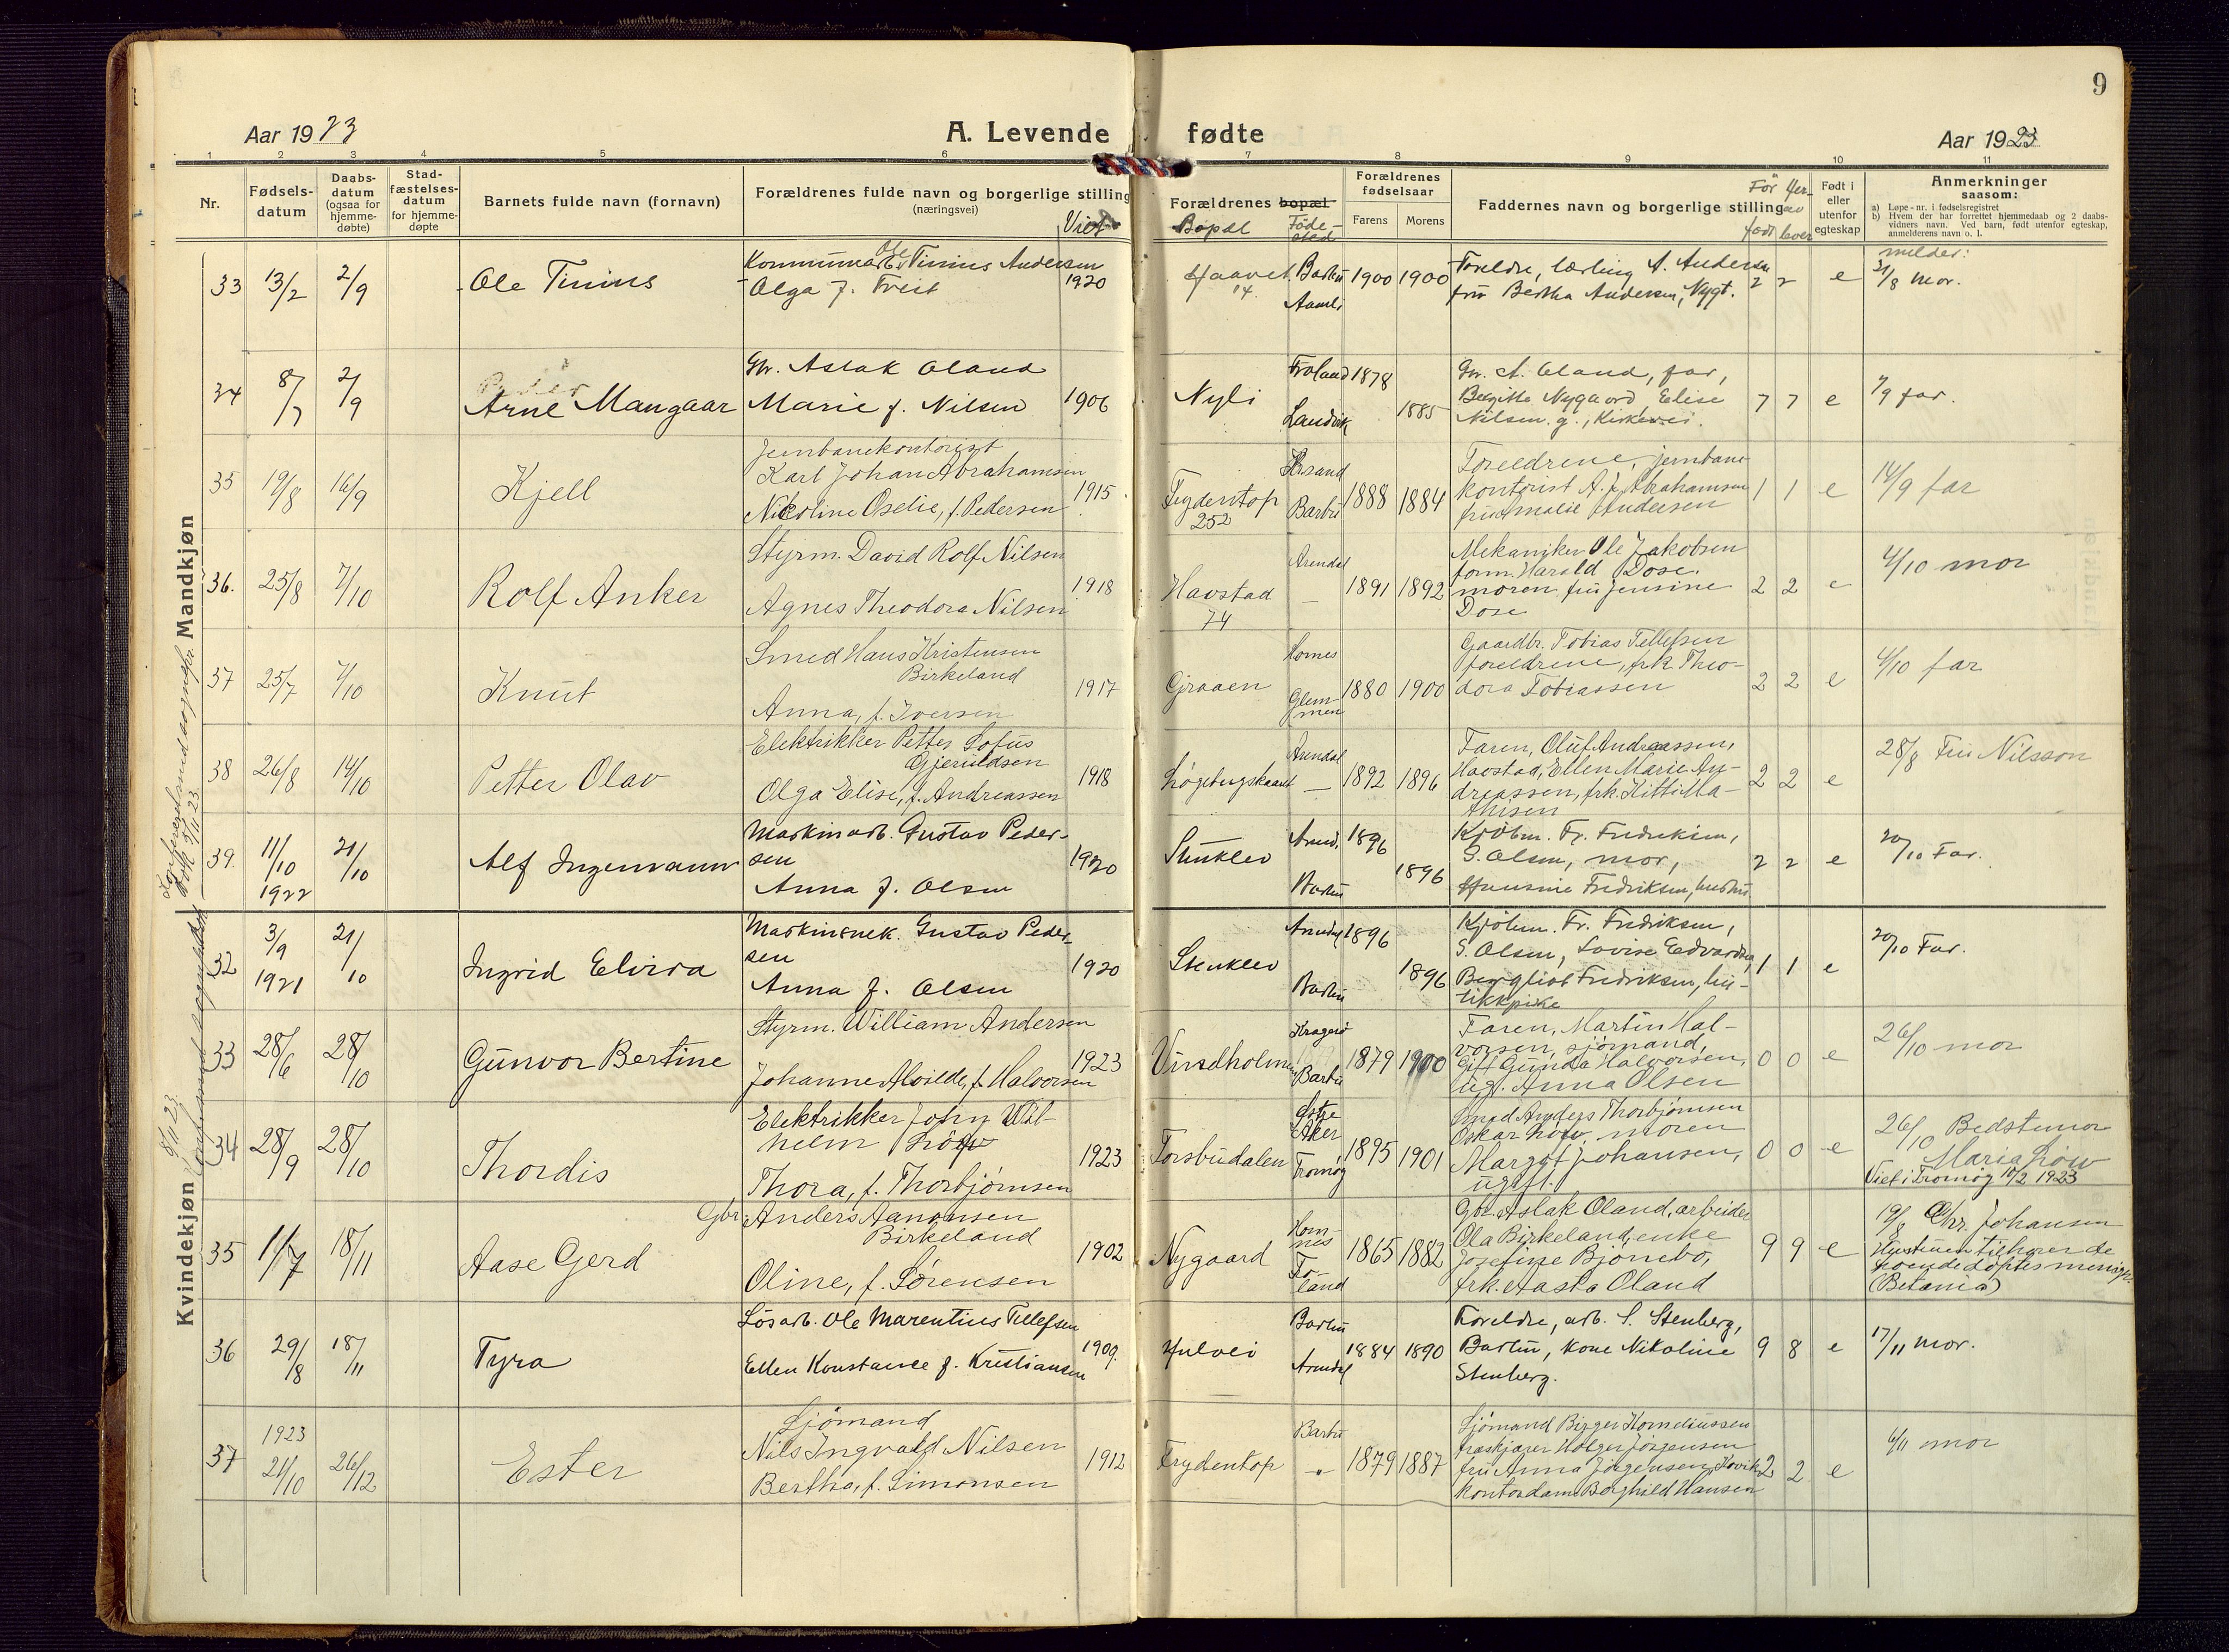 9
Aar 1923
A. Levende fødte
Aar 1923
1 2 3 4 5 6 7 8 9 10 11
Nr.
Fødsels-
datum
Daabs-
datum
(ogsaa for
hjemme-
døbte)
Stad-
fæstelses-
datum
for hjemme-
døpte
Barnets fulde navn (fornavn)
Forældrenes fulde navn og borgerlige stilling
(næringsvei)
Viet
Forældrenes bopæl
Bopæl
Føde-
sted
Forældrenes
fødselsaar
Farens Morens
Faddernes navn og borgerlige stilling
Før
født
av
lever
Født i
eller
utenfor
egteskap
Anmerkninger
saasom:
a) Løpe-nr. i fødselsregistret
b) Hvem der har forrettet hjemmedaab og 2 daabs-
vidners navn. Ved barn, født utenfor egteskap,
anmelderens navn o. l.
Mandkjøn
33 13/2 2/9 Ole Tinius
Kommunearb. Ole Tinius Andersen
Olga f. Tveit
1920
14
Barbu
Aamli
1900 1900
Foreldre, lærling A. Andersen
fru Bertha Andersen, Nygt.
2 2 e
melder:
31/8 mor.
34 8/7 2/9 Arne Mangaar
Gbr. Aslak Oland
Marie f. Nilsen
1906
Nyli
Froland
Landvik
1878 1885
Gbr. A. Oland, far,
Birgitte Nygaard Elise
Nilsen. g., Kirkevei.
7 7 e
7/9 far.
35 19/8 16/9 Kjell
Jernbanekontorist
Karl Johan Abrahamsen
Nicoline Oselie, f. Pedersen
1915
Frydentop
252
Krsand
Barbu
1888 1884
Foreldrene, jernbane-
kontorist A. J. Abrahamsen
fru Amalie Andersen
1 1 e
14/9 far
36. 25/8 7/10 Rolf Anker
Styrm. David Rolf Nilsen
Agnes Theodora Nilsen
1918
Havstad
74
Arendal
—
1891 1892
Mekaniker Ole Jakobsen
form. Harald Dose.
moren, fru Jensine
Dose
2 2 e
4/10 mor
37 25/7 7/10 Knut
Smed Hans Kristensen
Birkeland
Anna, f. Iversen
1917
Graaen
Hornes
Glem-
men
1880 1900
Gaardbr. Tobias Tellefsen
foreldrene, frk. Theo-
dora Tobiassen
2 2 e
4/10 far
38 26/8 14/10 Petter Olav
Elektrikker Petter Lofus
Gjeruldsen
Olga Elise, f. Andreassen
1918
Arendal
—
1892 1896
Faren, Oluf Andreassen,
Havstad, Ellen Marie An-
dreassen, frk. Kitti Ma-
thisen
2 2 e
28/8 Fru Nilsson
39. 11/10 1922 21/10 Alf Ingemann
Maskinarb. Gustav Peder-
sen
Anna f. Olsen
1920
Stenklev
Arend.
Barbu
1896 1896
Kjøbm. Fr. Fredriksen,
S. Olsen, mor,
Fredriksen, hustru
2 2 e
20/10 Far.
Kvindekjøn
32 3/9 1921 21/10 Ingrid Elvira
Maskinmek. Gustav Peder-
sen
Anna f. Olsen
1920
Stenklev
Arendal
Barbu
1896 1896
Kjøbm. Fr. Fredriksen,
S. Olsen, Lovise Edvardsen,
Bergliot Fredriksen, bu-
tikkpike
1 1 e
20/10 Far.
33 28/6 28/10 Gunvor Bertine
Styrm. William Andersen
Johanne Alvilde, f. Halvorsen
1923
Vindholmen
Kragerø
Barbu
1879 1900
Faren, Martin Hal-
vorsen, sjømand,
Gift Gunda Halvorsen,
ug. Anna Olsen
0 0 e
26/10 mor
34 28/9 28/10 Thordis
Elektrikker John Wil-
helm Løw
Thora, f. Thorbjørnsen
1923
Torsbudalen
Østre
Aker
Tromøy
1895 1901
Smed Anders Thorbjørnsen
Oskar Løw, moren
Margot Johansen,
ugift.
0 0 e
26/10 Bedstemor
Maria Løw
Viet i Tromøy 10/2 1923
35 11/7 18/11 Aase Gerd
Gbr. Anders Aanonsen
Birkeland
Oline, f. Sørensen
1902
Nygaard
Horn-
nes
Fro-
land
1865 1882
Gbr. Aslak Oland, arbeider
Ola Birkeland, enke
Josefine Bjønebo,
frk. Aasta Oland
9 9 e
19/8 Chr. Johansen
Hustruen tilhører de
troende døptes menigh.
(Betania)
36 29/8 18/11 Tyra
Løsarb. Ole Marentius Tellefsen
Ellen Konstance f. Kristiansen
1909.
Hulvei
Barbu
Arendal
1884 1890
Foreldre, arb. S. Stenberg,
Barbu, kone Nikoline
Stenberg.
9 8 e
17/11 mor.
37 1923 21/10 26/12 Ester
Sjømand
Nils Ingvald Nilsen
Bertha, f. Simonsen
1912
Frydentop
Barbu
"
1879 1887
Sjømand Birger Korneliussen
træskjærer Holger Jørgensen
fru Anna Jørgensen, Kovik
kontordame Borghild Hansen
2 2 e
6/11 mor